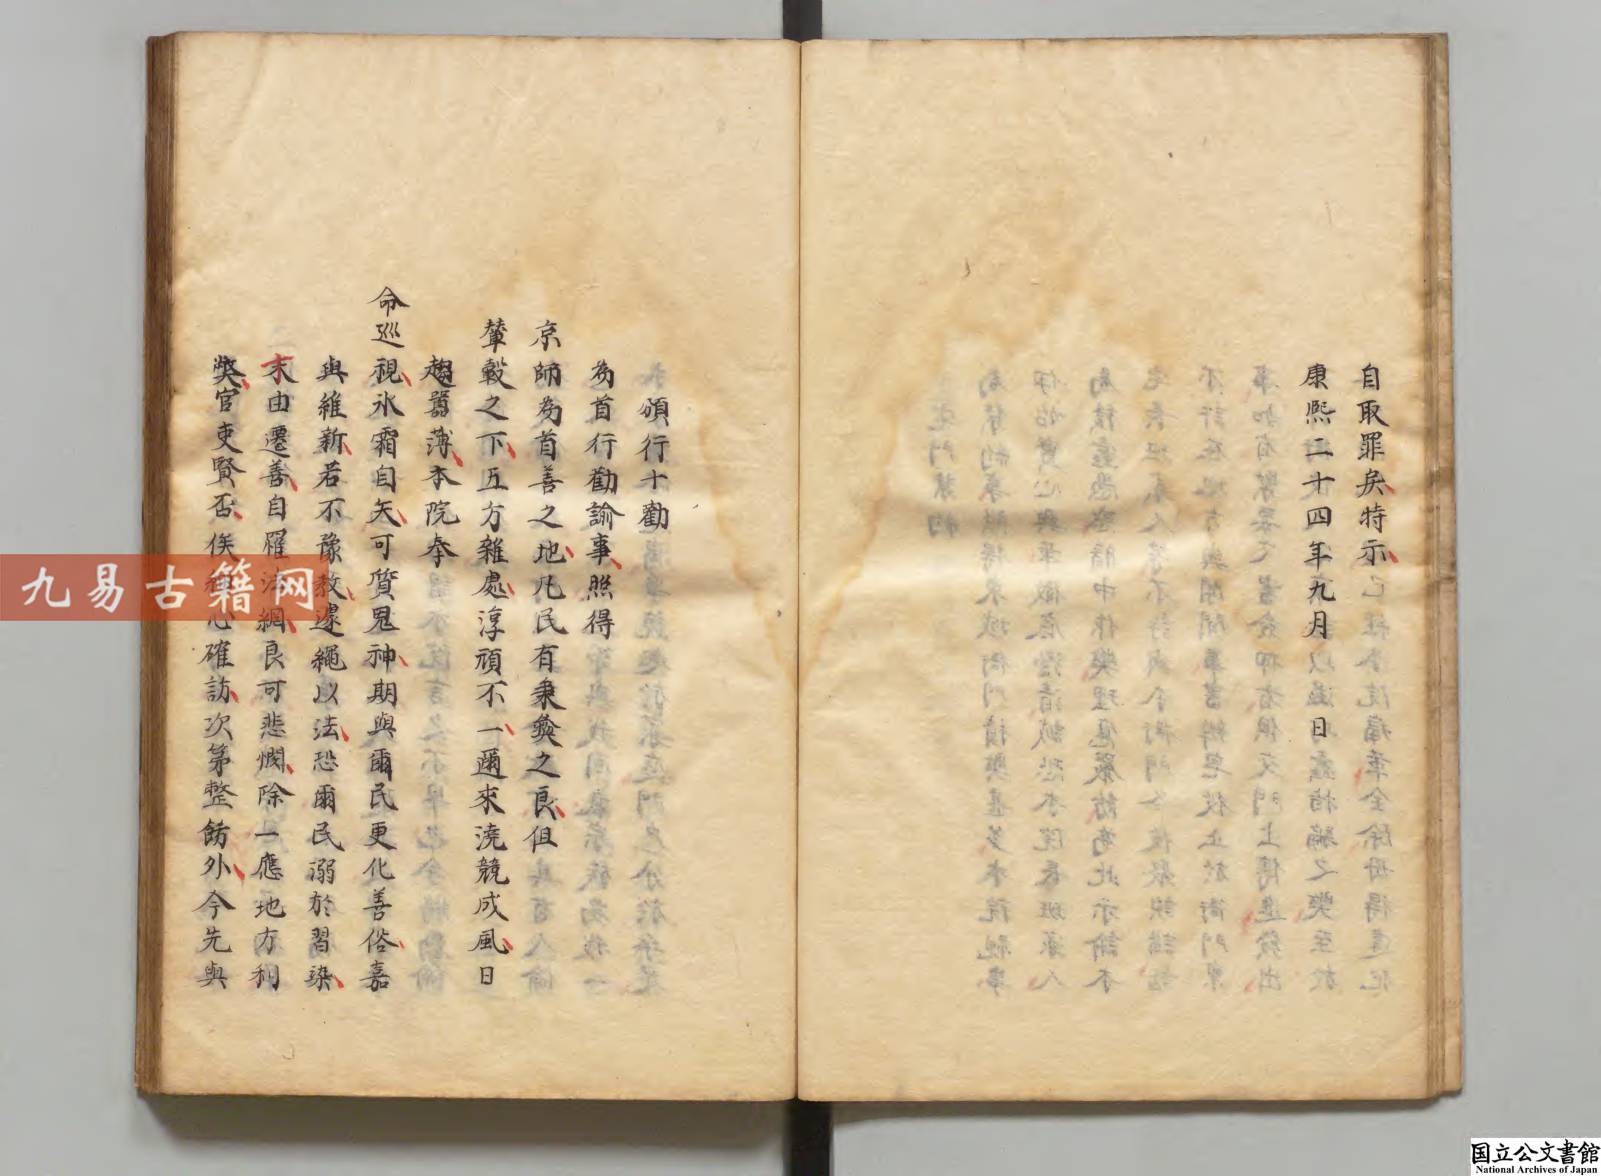 自取罪矣特示
康熙二十四年九月 日
頒行十勸
為首行勸諭事照得
京師為首善之地凡民有秉彝之良但
輦轂之下五方雜處淳頑不一邇來澆競成風日
趨囂薄本院奉
命巡視氷霜自矢可質鬼神期與爾民更化善俗嘉
與維新若不豫教遽繩以法恐爾民溺於習染
末由遷善自罹法綱良可悲憫除一應地方利
獘官吏賢否俟細心確訪次第整飭外今先與
九易古籍网
国立公文書館
National Archives of Japan